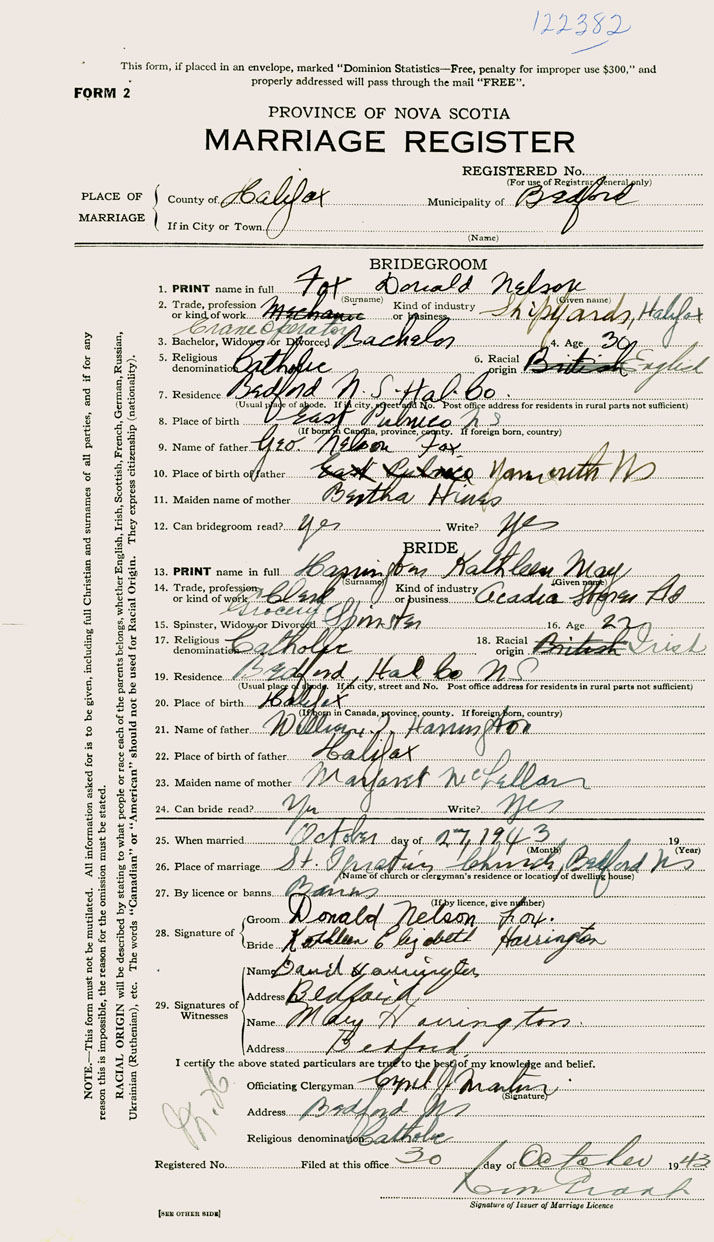 122382
This form, if placed in an envelope, marked "Dominion Statistics—Free, penalty for improper use $300," and
properly addressed will pass through the mail "FREE".
FORM 2
PROVINCE OF NOVA SCOTIA
MARRIAGE REGISTER
REGISTERED No.
(For use of Registrar General only)
PLACE OF MARRIAGE
County of Halifax Municipality of Bedford
If in City or Town
(Name)
BRIDEGROOM
1. PRINT name in full Fox Donald Nelson
(Surname) (Given name)
2. Trade, profession or kind of work Mechanic Crane Operator Kind of industry or business Shipyards, Halifax
3. Bachelor, Widower or Divorced Bachelor 4. Age 30
5. Religious denomination Catholic 6. Racial origin British English
7. Residence Bedford N.S. Hal. Co.
(Usual place of abode. If in city, street and No. Post office address for residents in rural parts not sufficient)
8. Place of birth East Pubnico N S
(If born in Canada, province, county. If foreign born, country)
9. Name of father Geo. Nelson Fox
10. Place of birth of father East Pubnico Yarmouth NS
11. Maiden name of mother Bertha Hines
12. Can bridegroom read? Yes Write? Yes
BRIDE
13. PRINT name in full Harrington Kathleen May
(Surname) (Given name)
14. Trade, profession or kind of work Clerk Grocery Kind of industry or business Acadia Stores
15. Spinster, Widow or Divorced Spinster 16. Age 22
17. Religious denomination Catholic 18. Racial origin British Irish
19. Residence Bedford, Hal Co N S
(Usual place of abode. If in city, street and No. Post office address for residents in rural parts not sufficient)
20. Place of birth Halifax
(If born in Canada, province, county. If foreign born, country)
21. Name of father William J. Harrington
22. Place of birth of father Halifax
23. Maiden name of mother Margaret McLellan
24. Can bride read? Yes Write? Yes
25. When married October day of 27, 1943 19
(Month) (Year)
26. Place of marriage St. Ignatius Church, Bedford NS
(Name of church or clergyman's residence or location of dwelling house)
27. By licence or banns Banns
(If by licence, give number)
28. Signature of
Groom Donald Nelson Fox.
Bride Kathleen Elizabeth Harrington
29. Signatures of Witnesses
Name David Harrington
Address Bedford
Name Mary Harrington.
Address Bedford
I certify the above stated particulars are true to the best of my knowledge and belief.
Officiating Clergyman Cyril J. Martin
(Signature)
Address Bedford NS
Religious denomination Catholic
Registered No. Filed at this office 30 day of October 1943
Signature of Issuer of Marriage Licence
[SEE OTHER SIDE]
NOTE.—This form must not be mutilated. All information asked for is to be given, including full Christian and surnames of all parties, and if for any
reason this is impossible, the reason for the omission must be stated.
RACIAL ORIGIN will be described by stating to what people or race each of the parents belongs, whether English, Irish, Scottish, French, German, Russian,
Ukrainian (Ruthenian), etc. The words "Canadian" or "American" should not be used for Racial Origin. They express citizenship (nationality).